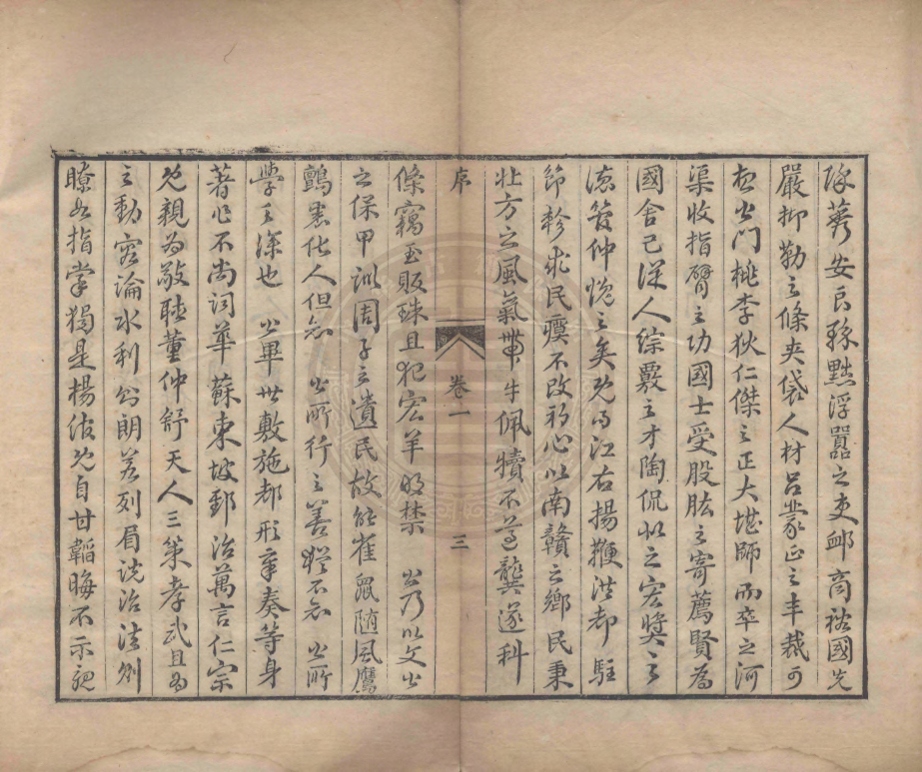 除莠安良殄黜浮囂之吏卹商裕國先
嚴抑勒之條夹袋人材呂蒙正之丰裁可
想公門桃李狄仁傑之正大堪師而卒之河
渠收指臂之功國士受股肱之寄薦賢為
國舍己從人綜覈之才陶侃似之宏奬之
德管仲愧之矣允乃江右揚鞭洪都駐
節軫求民瘼不改初心以南贛之鄉民秉
壮方之風氣帶牛佩犢不遵龔遂科
條竊玉販珠且犯宏羊明禁 公乃以文公
之保甲訓周子之遺民故能雀鼠随風鷹
鸇裏化人但知 公所行之善猶不知 公所
學之深也 公畢世敷施都形章奏等身
著作不尚词華蘇東坡郅治萬言仁宗
允親為敬聴董仲舒天人三策孝武且為
之動容論水利公朗若列眉説治法則
瞭如指掌獨是楊依允自甘韜晦不示
序 卷一 三